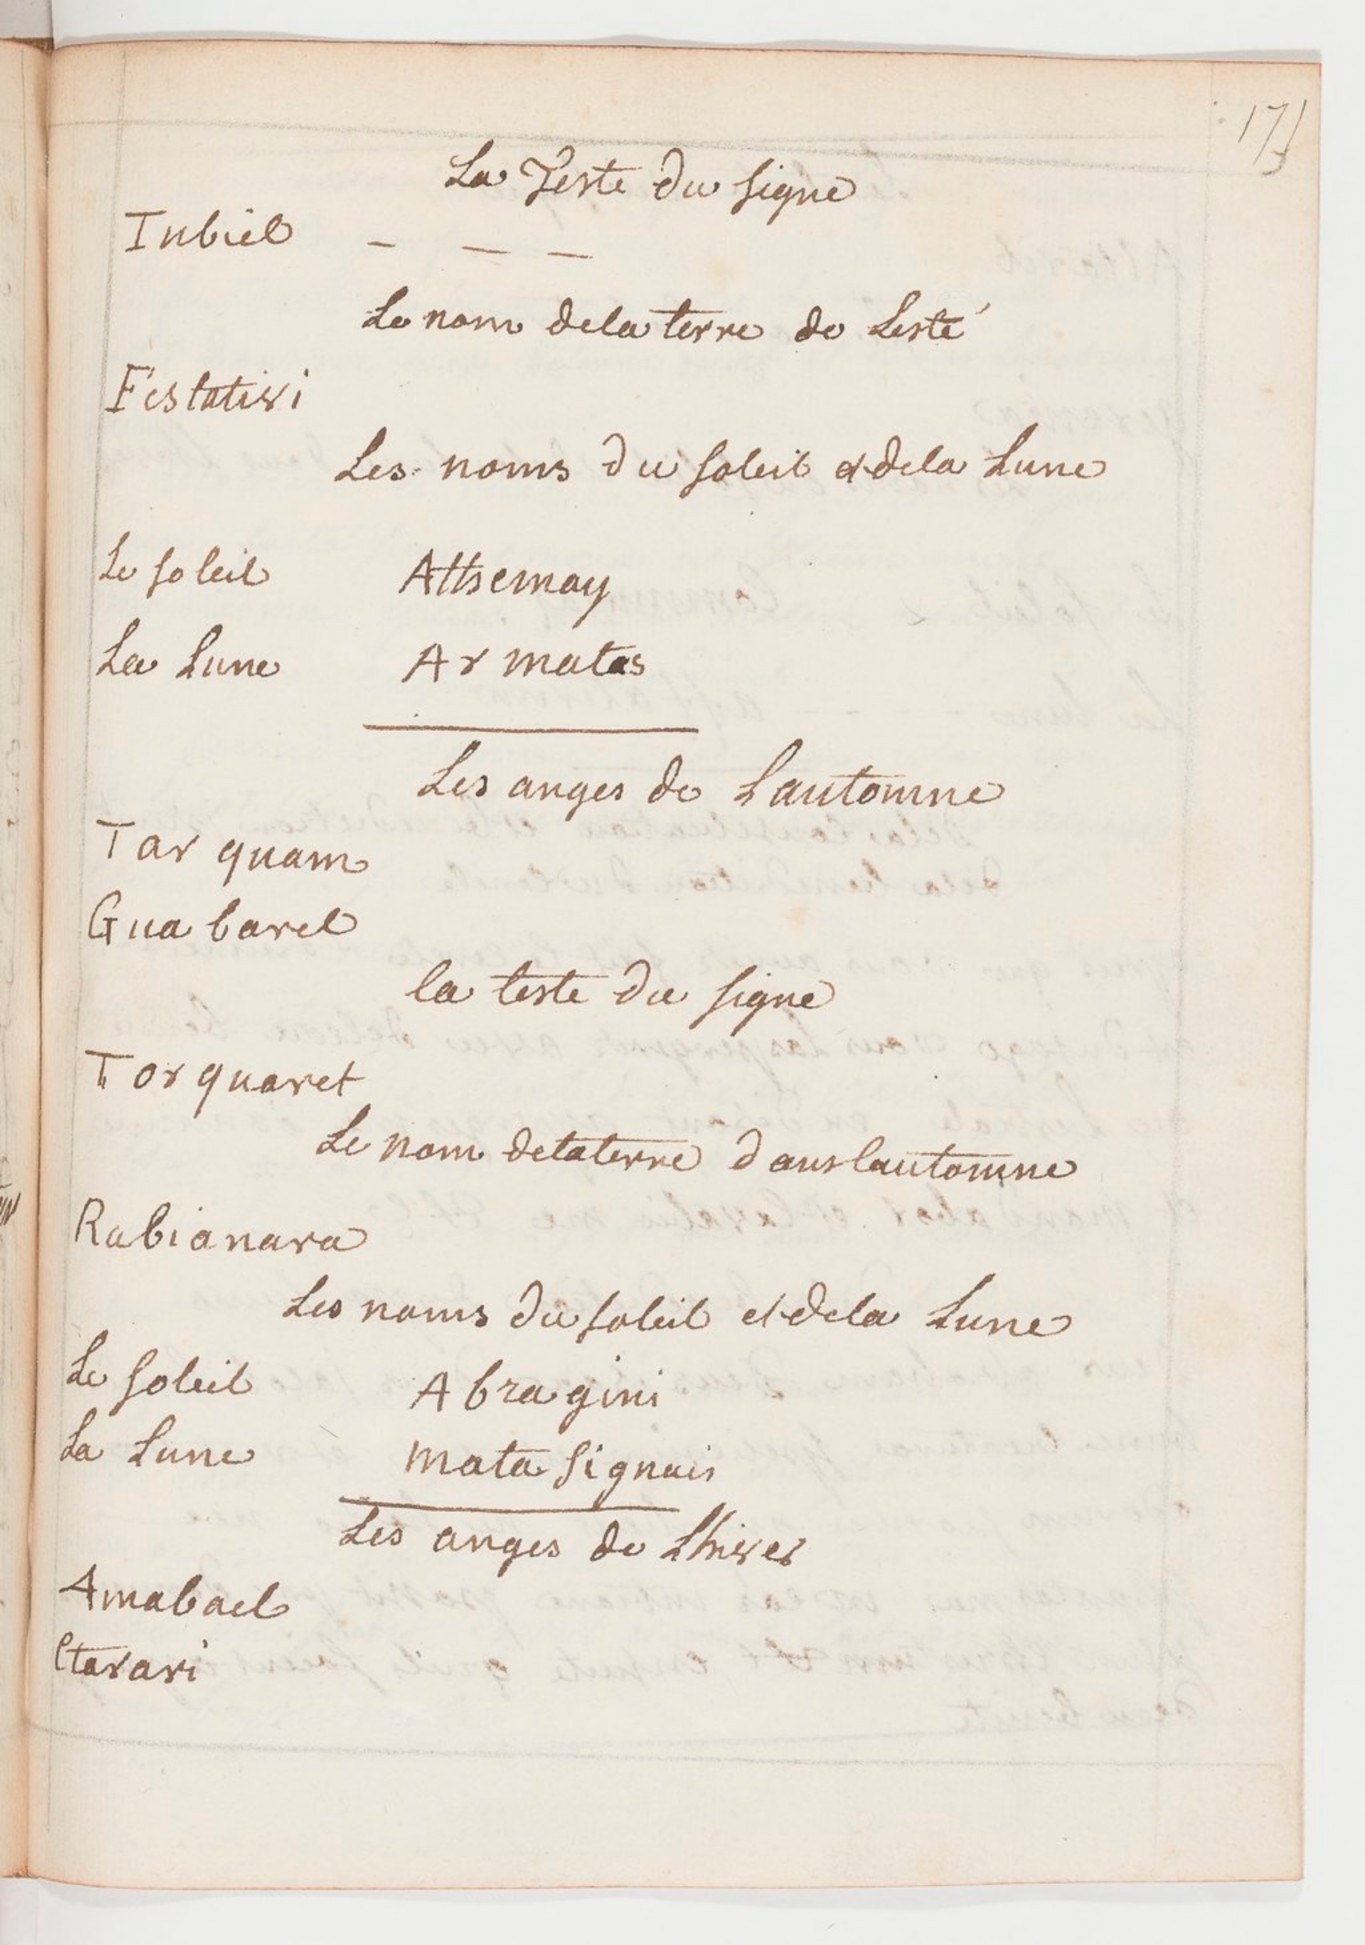 La Teste du signe
Tubiel — — —
Le nom dela terre de Lesté
Festativi
Les noms du soleil et dela Lune
Le soleil Athemay
La Lune Armatas
Les anges de Lautomne
Tarquam
Guabarel
la teste du signe
Torquaret
Le nom delaterre dans lautomne
Rabianara
Les noms du soleil et dela Lune
Le soleil Abragini
La Lune matasignais
Les anges de Lhiver
Amabael
Ctarari